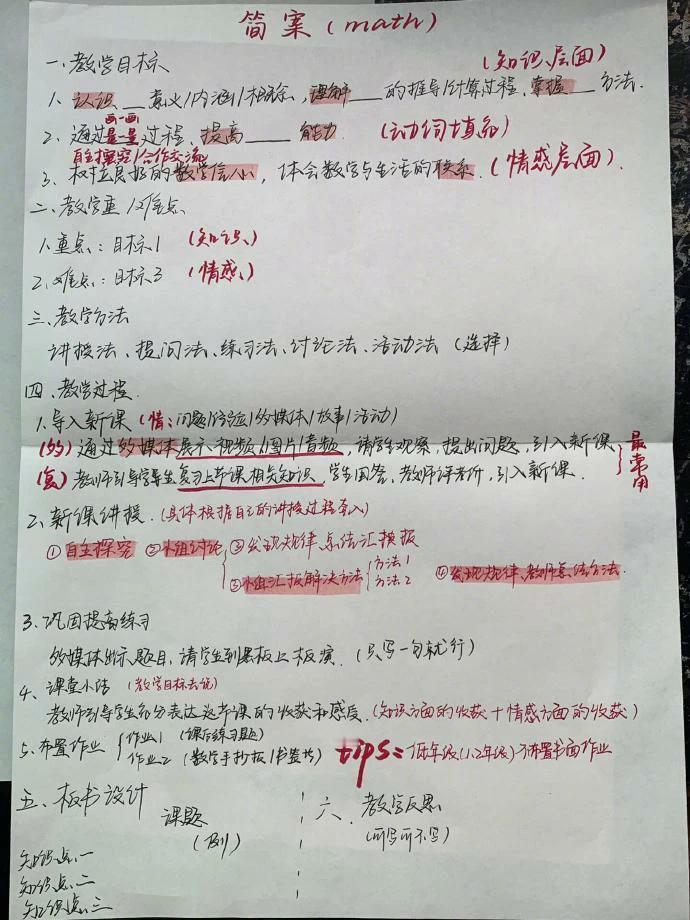 简案(math)
一、教学目标 (知识层面)
1、认识__意义/内涵/相除,理解__的推导/计算过程,掌握__方法.
画一画
2、通过量一量过程,提高____能力. (动词填名)
自主探究/合作交流
3、树立良好的数学信心,体会数学与生活的联系.(情感层面)
二、教学重/难点
1、重点:目标1 (知识)
2、难点:目标3 (情感)
三、教学方法
讲授法、提问法、练习法、讨论法、活动法 (选择)
四、教学过程
1、导入新课 (情、问题/经验/多媒体/故事/活动)
(多)通过多媒体展示视频/图片/音频,请学生观察,提出问题,引入新课
(复)教师引导学生复习上节课相关知识,学生回答,教师评价,引入新课.
最常用
2、新课讲授.(具体根据自己的讲授过程套入)
①自主探究 ②小组讨论 ③发现规律总结汇报
③小组汇报解决方法 方法1 方法2
④发现规律、教师总结方法.
3、巩固提高练习
多媒体出示题目,请学生到黑板上板演.(只写一句就行)
4、课堂小结 (教学目标去说)
教师引导学生充分表达这节课的收获和感受.(知识方面的收获+情感方面的收获)
5、布置作业 作业1 (课后练习题)
作业2 (数学手抄报/书签书)
tips:低年级(1.2年级)不布置书面作业
五、板书设计
课题
(例)
知识点一
知识点二
知识点三
六、教学反思
(可写可不写)